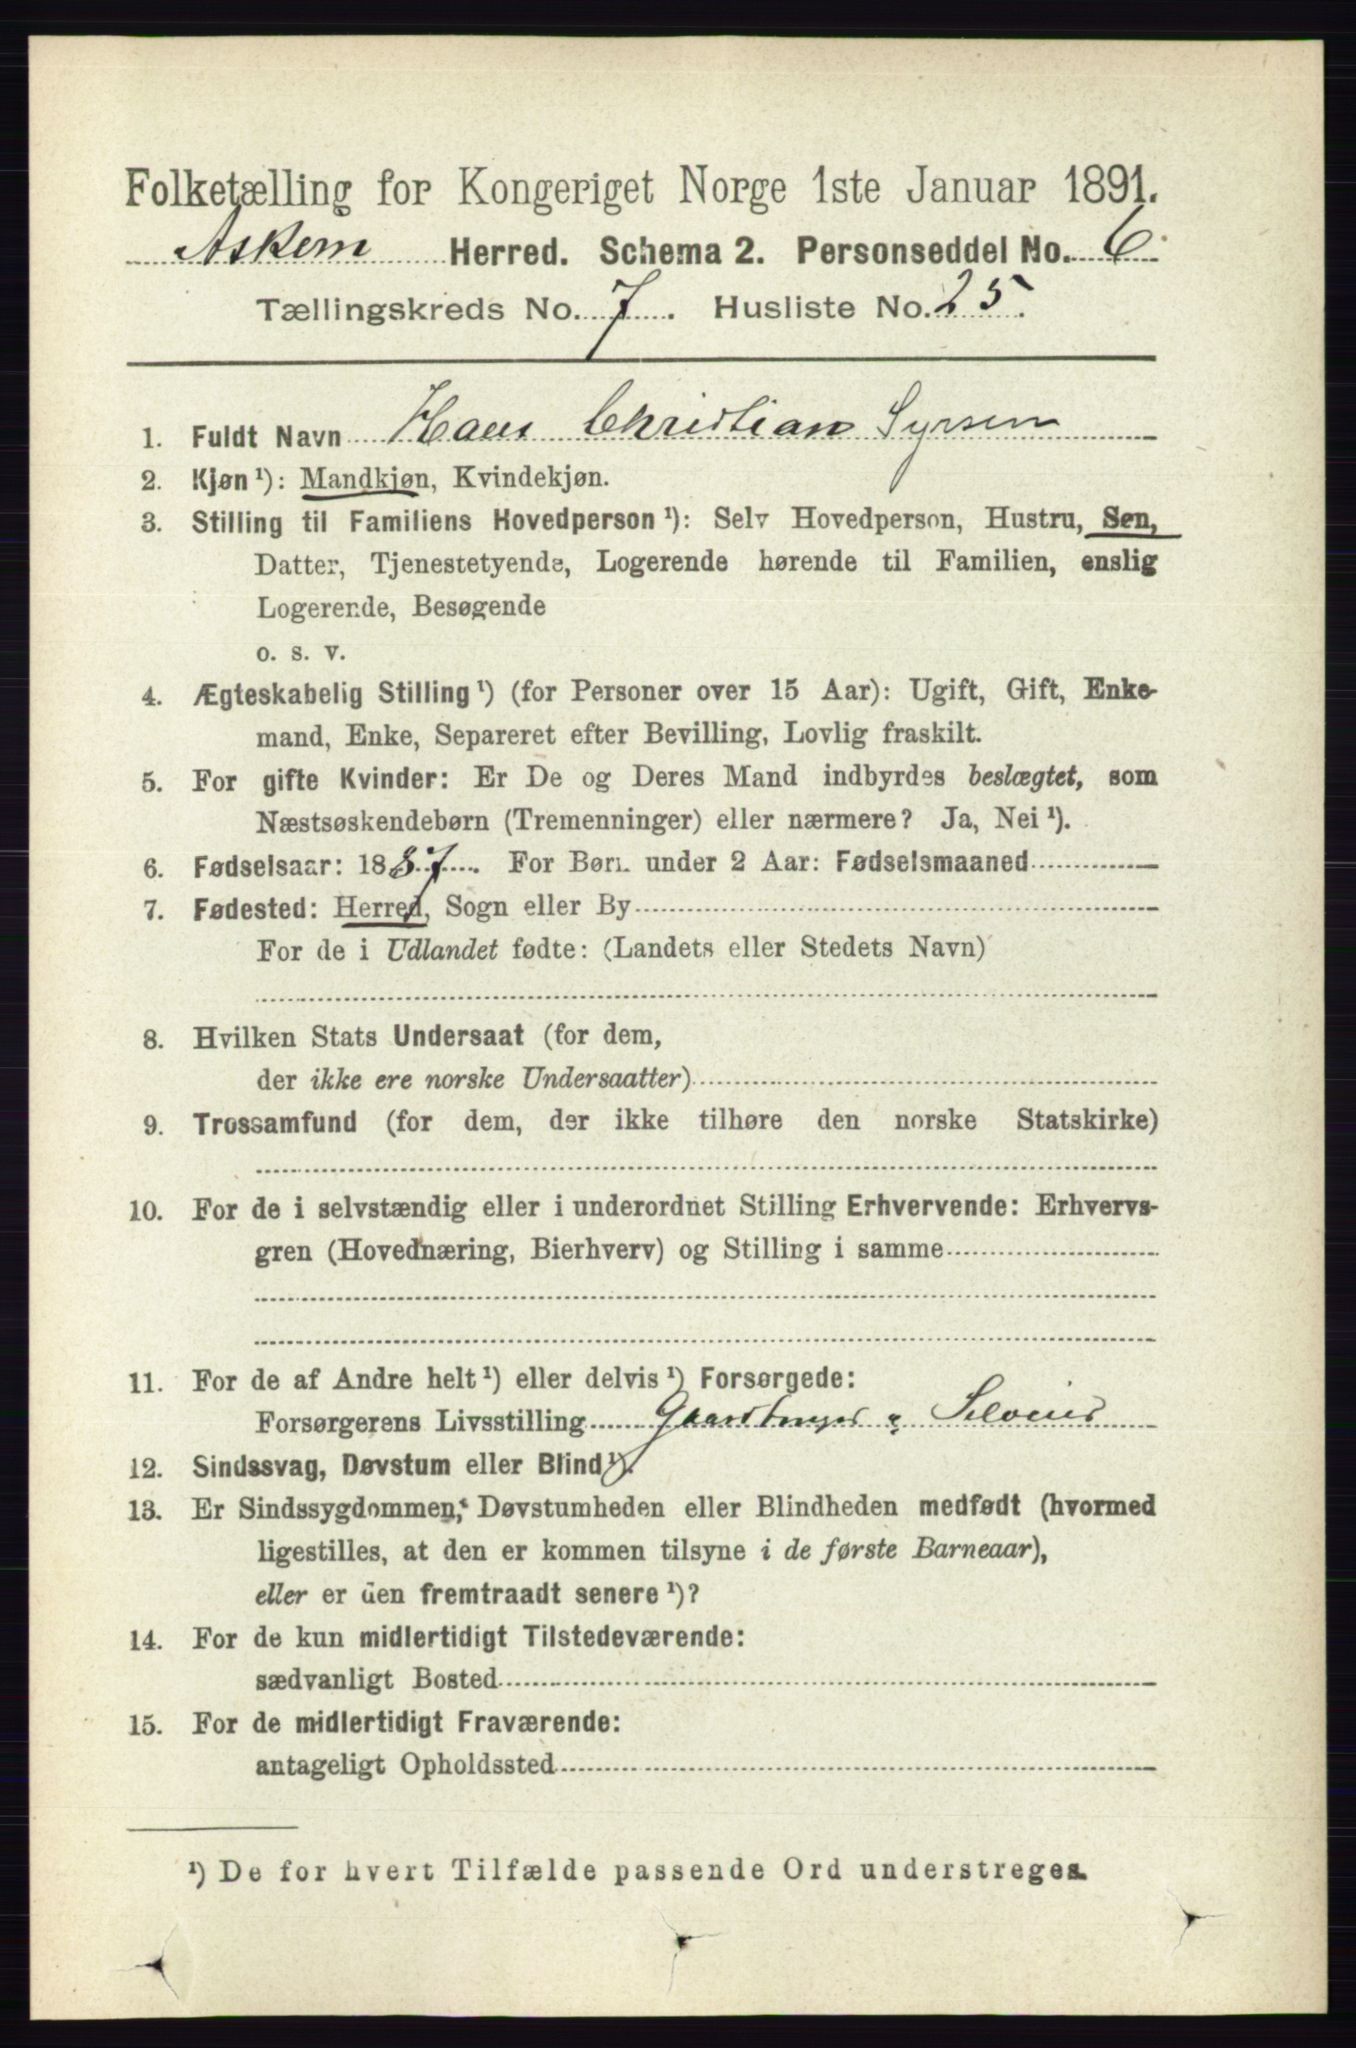 Folketælling for Kongeriget Norge 1ste Januar 1891.
Askem Herred. Schema 2. Personseddel No. 6
Tællingskreds No. 7. Husliste No. 25.
1. Fuldt Navn Hans Christian Syrsen
2. Kjøn¹): Mandkjøn, Kvindekjøn.
3. Stilling til Familiens Hovedperson¹): Selv Hovedperson, Hustru, Søn,
Datter, Tjenestetyende, Logerende hørende til Familien, enslig
Logerende, Besøgende
o. s. v.
4. Ægteskabelig Stilling¹) (for Personer over 15 Aar): Ugift, Gift, Enke-
mand, Enke, Separeret efter Bevilling, Lovlig fraskilt.
5. For gifte Kvinder: Er De og Deres Mand indbyrdes beslægtet, som
Næstsøskendebørn (Tremenninger) eller nærmere? Ja, Nei¹).
6. Fødselsaar: 1887. For Børn under 2 Aar: Fødselsmaaned
7. Fødested: Herred, Sogn eller By
For de i Udlandet fødte: (Landets eller Stedets Navn)
8. Hvilken Stats Undersaat (for dem,
der ikke ere norske Undersaatter)
9. Trossamfund (for dem, der ikke tilhøre den norske Statskirke)
10. For de i selvstændig eller i underordnet Stilling Erhvervende: Erhvervs-
gren (Hovednæring, Bierhverv) og Stilling i samme
11. For de af Andre helt¹) eller delvis¹) Forsørgede:
Forsørgerens Livsstilling Gaardbruger & Seloeier
12. Sindssvag, Døvstum eller Blind¹).
13. Er Sindssygdommen, Døvstumheden eller Blindheden medfødt (hvormed
ligestilles, at den er kommen tilsyne i de første Barneaar),
eller er den fremtraadt senere¹)?
14. For de kun midlertidigt Tilstedeværende:
sædvanligt Bosted
15. For de midlertidigt Fraværende:
antageligt Opholdssted
¹) De for hvert Tilfælde passende Ord understreges.